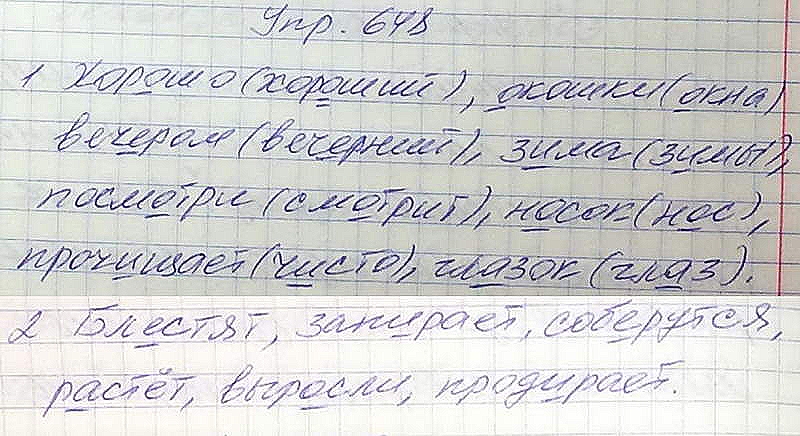 Упр. 648
1 Хорошо (хороший), окошки (окна)
вечером (вечерний), зима (зимы),
посмотри (смотрит), носок (нос),
прочищает (чисто), глазок (глаз).
2 Блестят, запирает, соберутся,
растёт, выросли, продирает.